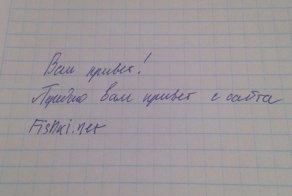 Вам привет!
Передаю Вам привет с сайта
Fishki.net